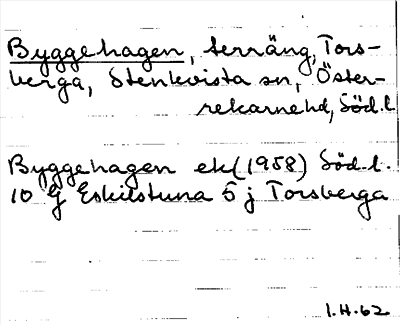 Byggehagen, terräng, Tors-
berga, Stenkvista sn, Öster-
rekarne hd, Söd.l.
Byggehagen ek (1958) Söd.l.
10 G Eskilstuna 5 j Torsberga
I.H.62